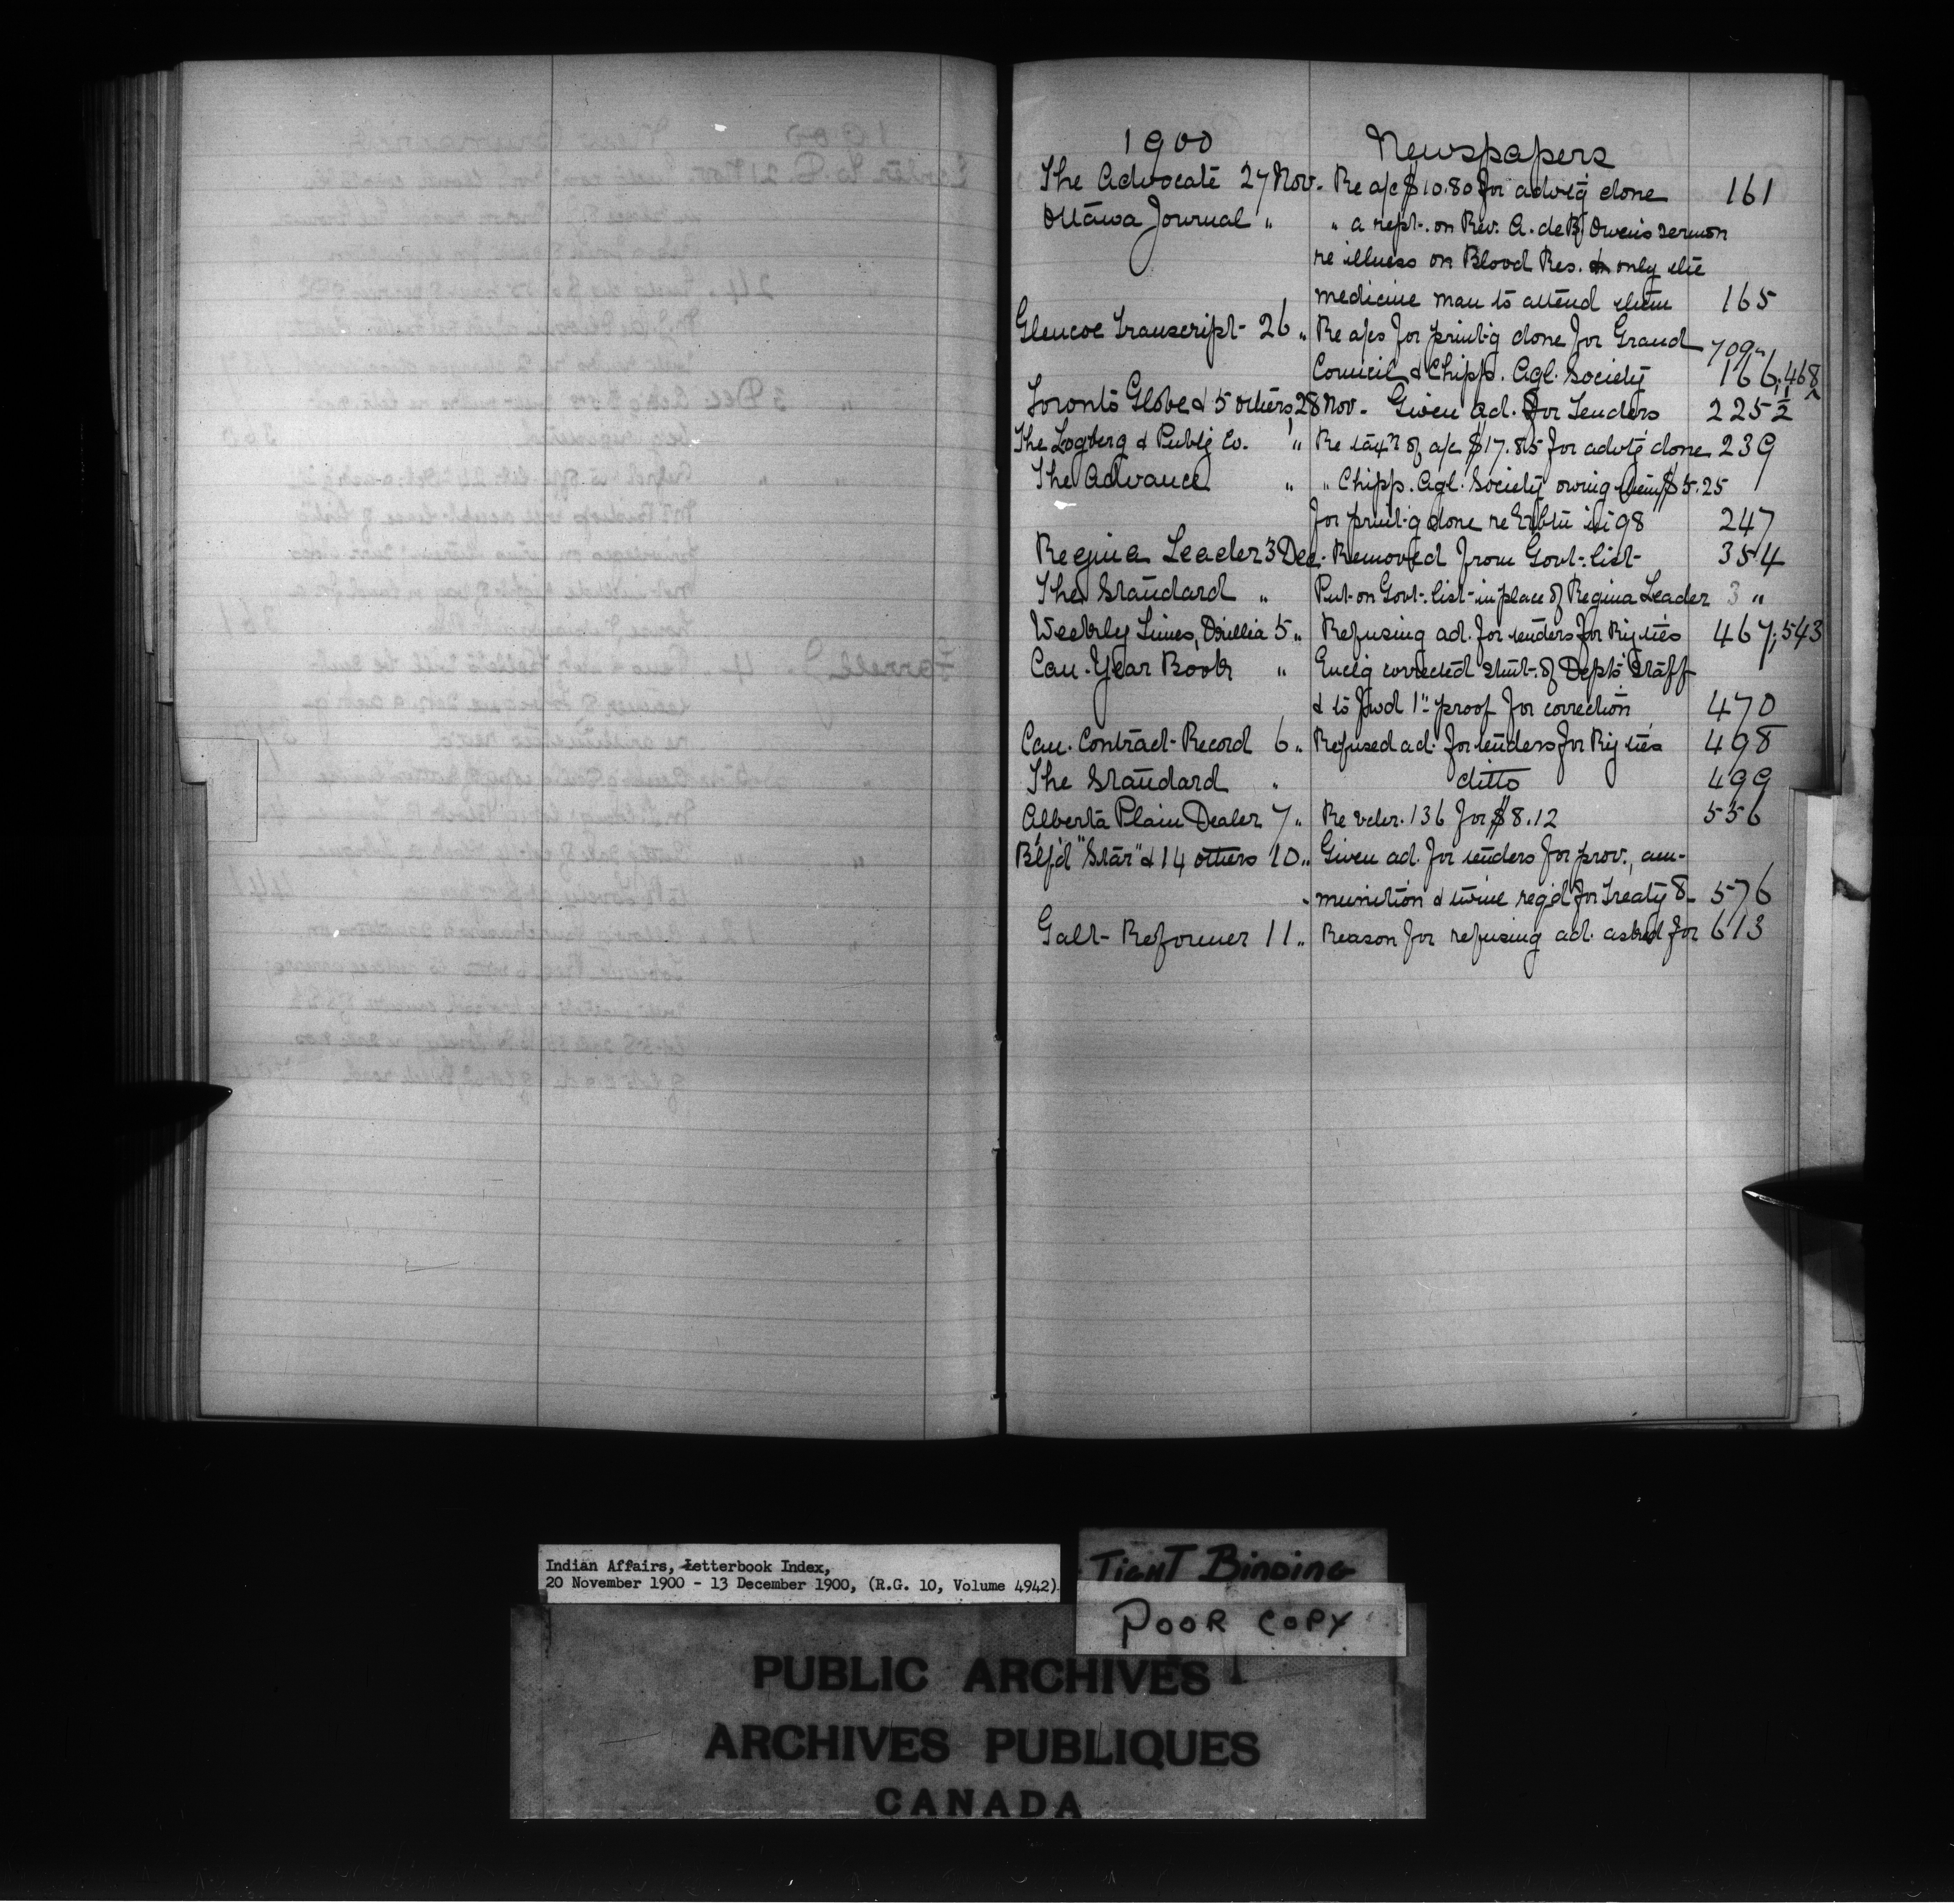 1900 Newspapers
The Advocate 27 Nov. Re a/c $10.80 for advtg done 161
Ottawa Journal " " a rept. on Rev. A. de B. Owen's sermon
re illness on Blood Res. & only the
medicine man to attend them 165
Glencoe Transcript - 26 " Re a/cs for print'g done for Grand 709
Council & Chipp. Agl. Society 166, 468
Toronto Globe & 5 others 28 Nov. Given ad. for Tenders 225 1/2
The Logberg & Publg Co. " Re tax'n of a/c $17.85 for advtg done 239
The Advance " " Chipp. Agl. Society owing them $5.25
for print'g done re Exbtn in 98 247
Regina Leader 3 Dec. Removed from Govt. list 354
The Standard " Put on Govt. list in place of Regina Leader 3 "
Weekly Times, Orillia 5 " Refusing ad. for tenders for Rly ties 467, 543
Can. Year Book " Enclg corrected stmt. of Dept's Staff
& to fwd 1" proof for correction 470
Can. Contract Record 6 " Refused ad. for tenders for Rly ties 498
The Standard " ditto 499
Alberta Plain Dealer 7 " Re vchr. 136 for $8.12 556
B'lf'd "Star" & 14 others 10 " Given ad. for tenders for prov., am-
munition & twine reqd for Treaty 8 576
Galt Reformer 11 " Reason for refusing ad. asked for 613
Indian Affairs, Letterbook Index,
20 November 1900 - 13 December 1900, (R.G. 10, Volume 4942)
TIGHT BINDING
POOR COPY
PUBLIC ARCHIVES
ARCHIVES PUBLIQUES
CANADA